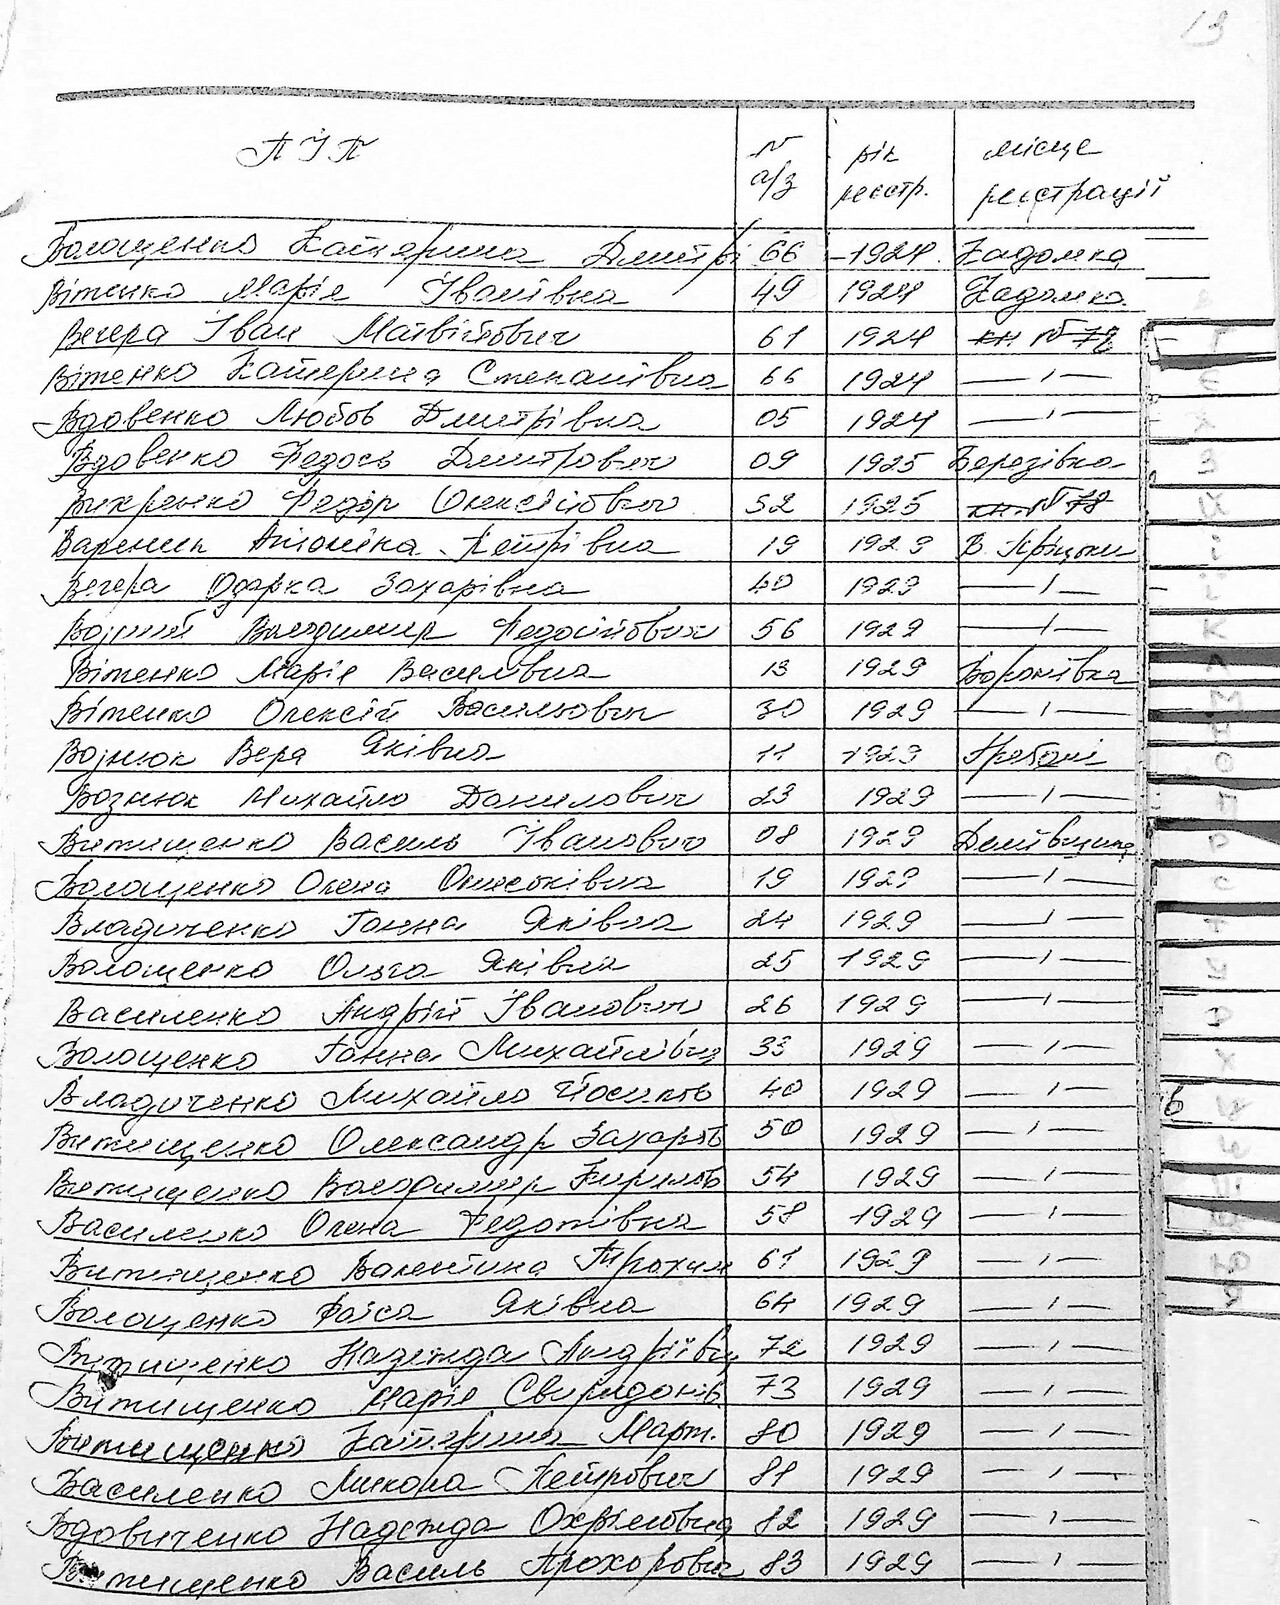 13
ПІП № а/з рік реєстр. місце реєстрації
Волощенко Катерина Дмитрі 66 1924 Кадомка
Вітенко Марія Іванівна 49 1924 Кадомка
Вегера Іван Матвійович 61 1924 кн. № 78
Вітенко Катерина Степанівна 66 1924 —ı—
Вдовенко Любов Дмитрівна 05 1924 —ı—
Вдовенко Федось Дмитрович 09 1925 Березівка
Вихренко Федір Олексійович 52 1925 кн. № 78
Вареник Антоніна Петрівна 19 1929 В. Кріцьки
Вегера Одарка Захарівна 40 1929 —ı—
Володимир Федосійович 56 1929 —ı—
Вітенко Марія Василівна 13 1929 Воронівка
Вітенко Олексій Васильович 30 1929 —ı—
Вознюк Вера Яківна 11 1929
Вознюк Михайло Данилович 23 1929 —ı—
Витищенко Василь Іванович 08 1929
Волощенко Олена Ониськівна 19 1929 —ı—
Владиченко Ганна Яківна 24 1929 —ı—
Волощенко Ольга Яківна 25 1929 —ı—
Василенко Андрій Іванович 26 1929 —ı—
Волощенко Ганна Михайлівна 33 1929 —ı—
Владиченко Михайло Йосипов 40 1929 —ı—
Витищенко Олександр Захаров 50 1929 —ı—
Витищенко Володимир Кирилов 54 1929 —ı—
Василенко Олена Федотівна 58 1929 —ı—
Витищенко Валентина Трохим 61 1929 —ı—
Волощенко Раїса Яківна 64 1929 —ı—
Витищенко Надежда Андріївн 72 1929 —ı—
Витищенко Марія Свиридонів 73 1929 —ı—
Витищенко Катерина Март. 80 1929 —ı—
Василенко Микола Петрович 81 1929 —ı—
Вдовиченко Надежда Охрімовна 82 1929 —ı—
Витищенко Василь Прохорович 83 1929 —ı—